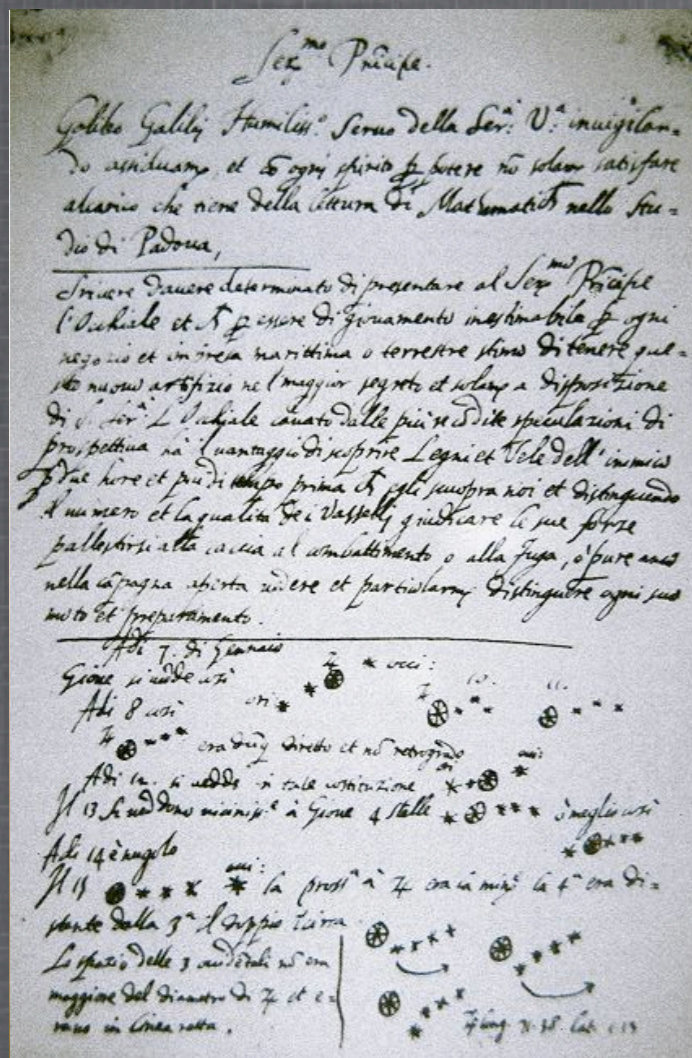 Ser.mo Principe.
Galileo Galilej Humiliss.o Seruo della Ser.a V.a inuigilan=
do assiduam.e, et cō ogni spirito p potere nō solam satisfare
alcarico che tiene della lettura di Mathematich nello Stu=
dio di Padoua,
Scriuere dauere determinato di presentare al Ser.mo Prīcipe
l'Occhiale et p essere di giouamento inestimabile p ogni
negozio et impresa marittima o terrestre stimo di tenere que=
sto nuouo artifizio nel maggior segreto et solam a disposizione
di S. Ser.a L Occhiale cauato dalle più recōdite speculazioni di
prospettiua ha il uantaggio di scoprire Legni et Vele dell' inimico
p due hore et più di tempo prima egli scuopra noi et distinguendo
il numero et la qualità de i Vasselli giudicare le sue forze
pallestirsi alla caccia al combattimento o alla fuga, ò pure anco
nella cāpagna aperta uedere et particolarm distinguere ogni suo
moto et preparamento.
Adi 7. di Gennaio
Gioue si uede così occi:
Adi 8 così ori: 10. 11.
era dūq diretto et nō retrogrado
Adi 12. si uedde in tale costituzione
Il 13 si ueddono uiciniss.e à Gioue 4 stelle ò meglio così
Adi 14 è nugolo
Il 15 occi: la pross.a à era la min.e la 4.a era di=
stante dalla 3.a il doppio circa
Lo spatio delle 3 occidētali nō era
maggiore del diametro di et e=
rano in linea retta.
long. lat.